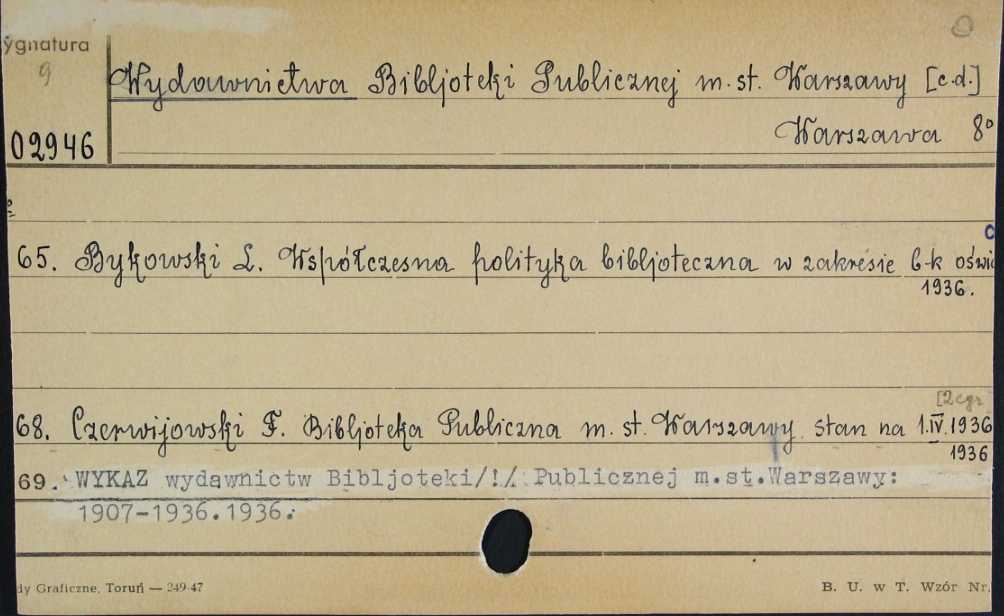 ygnatura
9
Wydawnictwa Bibljoteki Publicznej m. st. Warszawy [c.d.]
02946
Warszawa 8º
65. Bykowski L. Współczesna polityka bibljoteczna w zakresie b-k oświ
1936.
[2 egz
68. Czerwijowski F. Bibljoteka Publiczna m. st. Warszawy. stan na 1.IV.1936
1936
69. WYKAZ wydawnictw Bibljoteki/!/ Publicznej m.st.Warszawy:
1907-1936.1936.
dy Graficzne, Toruń — 249-47
B. U. w T. Wzór Nr.